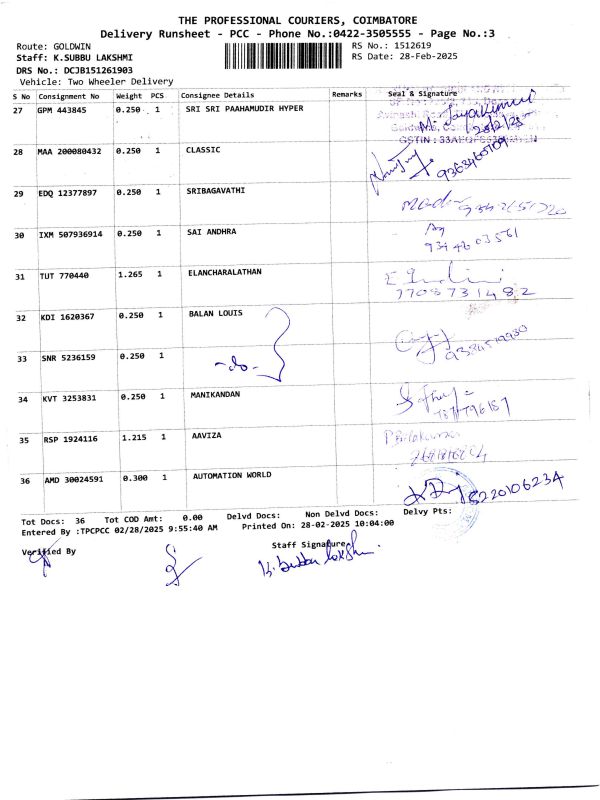 THE PROFESSIONAL COURIERS, COIMBATORE
Delivery Runsheet - PCC - Phone No.:0422-3505555 - Page No.:3
Route: GOLDWIN RS No.: 1512619
Staff: K.SUBBU LAKSHMI RS Date: 28-Feb-2025
DRS No.: DCJB151261903
Vehicle: Two Wheeler Delivery
S No Consignment No Weight PCS Consignee Details Remarks Seal & Signature
27 GPM 443845 0.250 1 SRI SRI PAAHAMUDIR HYPER
28/2/25
GSTIN :
28 MAA 200080432 0.250 1 CLASSIC
29 EDQ 12377897 0.250 1 SRIBAGAVATHI
30 IXM 507936914 0.250 1 SAI ANDHRA
9344603561
31 TUT 770440 1.265 1 ELANCHARALATHAN
7708731482
32 KDI 1620367 0.250 1 BALAN LOUIS
33 SNR 5236159 0.250 1 -do-
34 KVT 3253831 0.250 1 MANIKANDAN
35 RSP 1924116 1.215 1 AAVIZA
36 AMD 30024591 0.300 1 AUTOMATION WORLD 8220106234
Tot Docs: 36 Tot COD Amt: 0.00 Delvd Docs: Non Delvd Docs: Delvy Pts:
Entered By :TPCPCC 02/28/2025 9:55:40 AM Printed On: 28-02-2025 10:04:00
Verified By Staff Signature
K. Subbu lakshmi